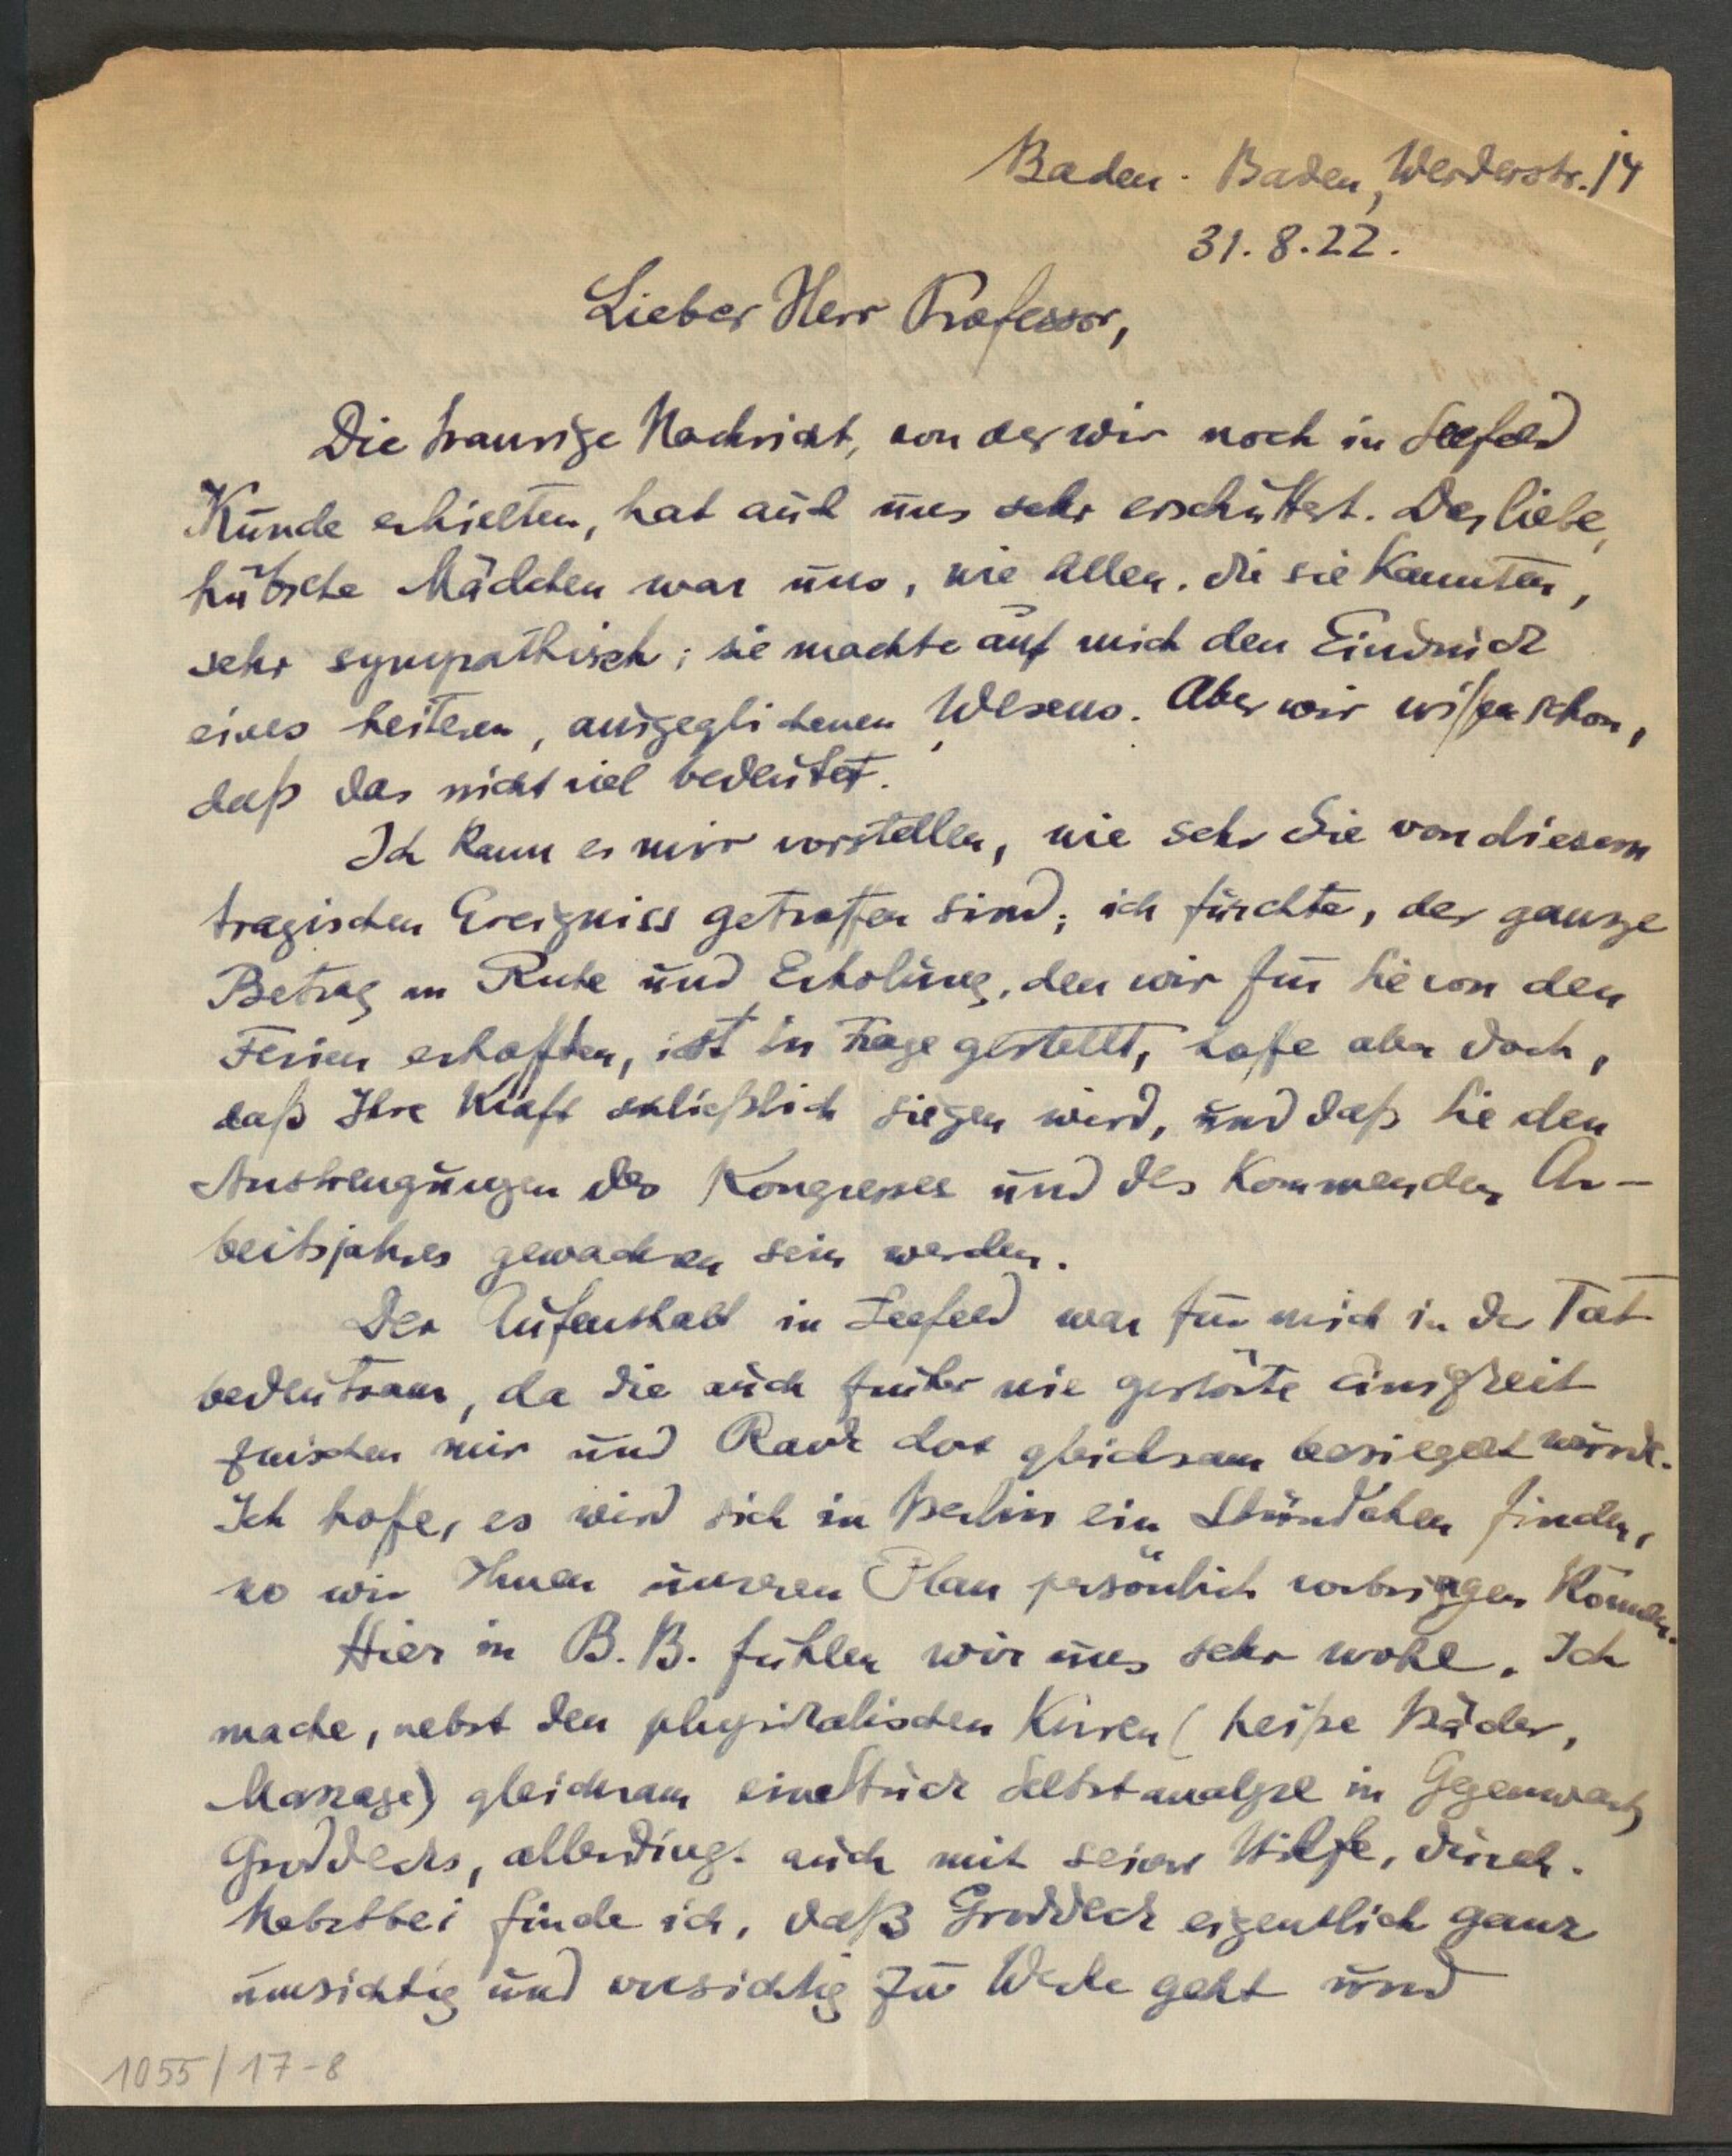 Baden-Baden, Werderstr. 14
31.8.22.
Lieber Herr Professor,
Die traurige Nachricht, von der wir noch in Seefeld
Kunde erhielten, hat auch uns sehr erschüttert. Das liebe,
hübsche Mädchen war uns, wie Allen, die sie kannten,
sehr sympathisch; sie machte auf mich den Eindruck
eines heiteren, ausgeglichenen Wesens. Aber wir wissen schon,
daß das nicht viel bedeutet.
Ich kann es mir vorstellen, wie sehr Sie von diesem
tragischen Ereigniss getroffen sind; ich fürchte, der ganze
Betrag an Ruhe und Erholung, den wir für Sie von den
Ferien erhofften, ist in Frage gestellt, hoffe aber doch,
daß Ihre Kraft schließlich siegen wird, und daß Sie den
Anstrengungen des Kongresses und des kommenden Ar-
beitsjahres gewachsen sein werden.
Der Aufenthalt in Seefeld war für mich in der Tat
bedeutsam, da die auch früher nie gestörte Einigkeit
zwischen mir und Rank dort gleichsam besiegelt wurde.
Ich hoffe, es wird sich in Berlin ein Stündchen finden,
wo wir Ihnen unseren Plan persönlich vorbringen können.
Hier in B.B. fühlen wir uns sehr wohl. Ich
mache, nebst den physikalischen Kuren (heiße Bäder,
Massage) gleichsam ein Stück Selbstanalyse in Gegenwart
Groddecks, allerdings auch mit seiner Hilfe, durch.
Nebstbei finde ich, daß Groddeck eigentlich ganz
umsichtig und vorsichtig zu Werke geht und
1055/17-8